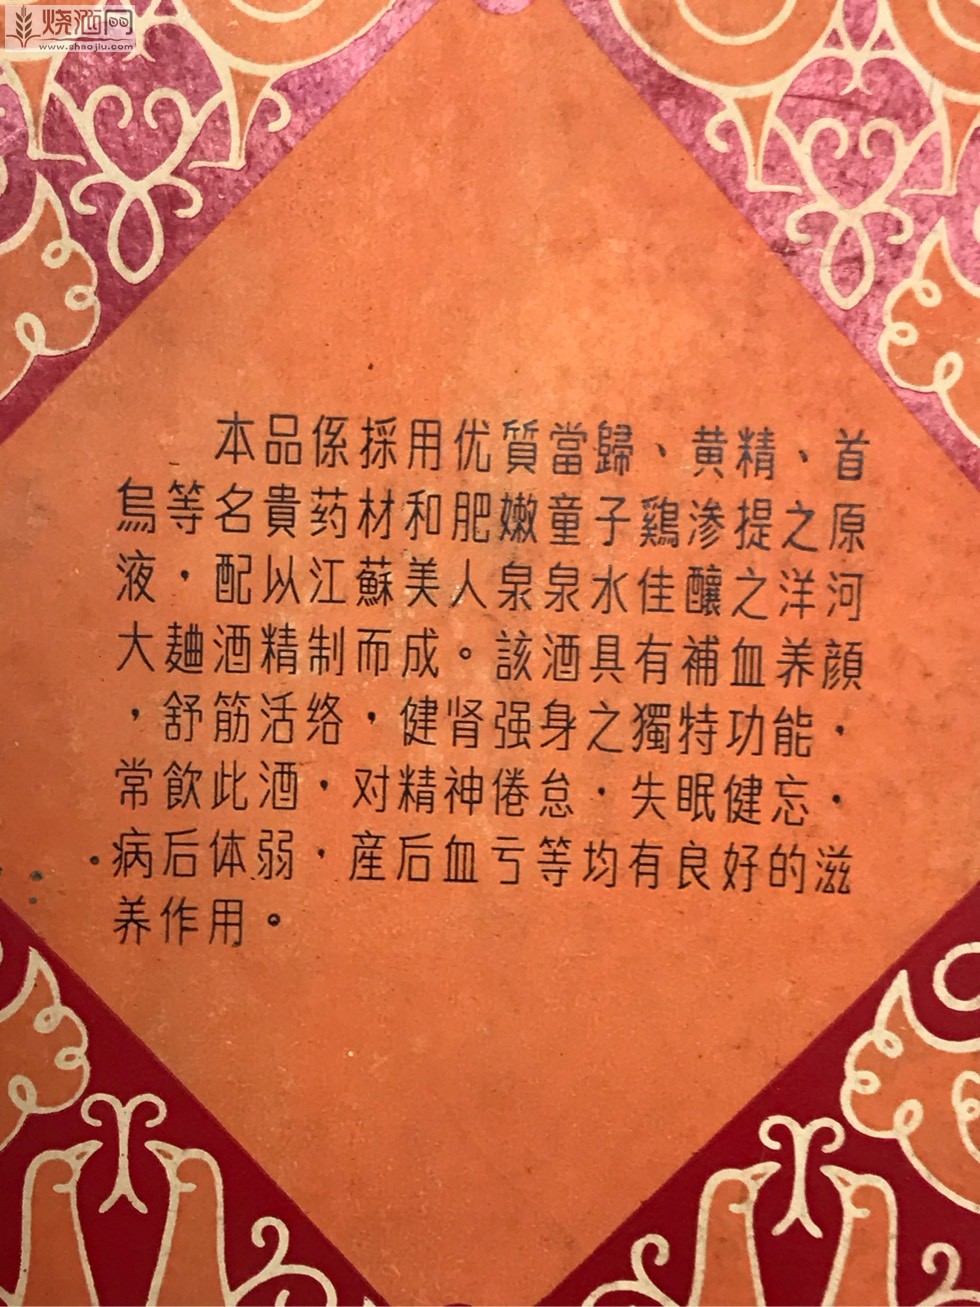 烧酒网
www.shaojiu.com
本品係採用优質當歸、黄精、首
烏等名貴药材和肥嫩童子鷄渗提之原
液，配以江蘇美人泉泉水佳釀之洋河
大麯酒精制而成。該酒具有補血养顔
，舒筋活络，健肾强身之獨特功能，
常飲此酒，对精神倦怠，失眠健忘，
病后体弱，産后血亏等均有良好的滋
养作用。